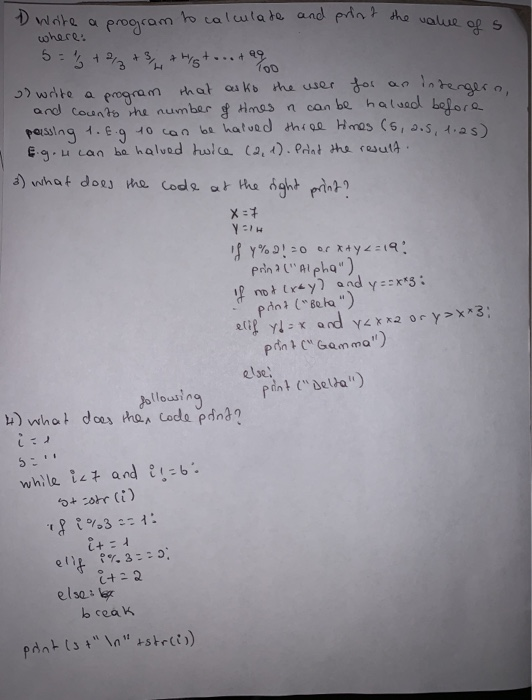 1) Write a program to calculate and print the value of s
where:
S = 1/2 + 2/3 + 3/4 + 4/5 + ... + 99/100
2) write a program that asks the user for an intengern,
and counts the number of times n can be halved before
passing 1. E.g 10 can be halved three times (5, 2.5, 1.25)
E.g. 4 can be halved twice (2, 1). Print the result.
3) what does the code at the right print?
X = 7
Y = 14
if y%2!=0 or x+y<=19:
print("Alpha")
if not (x<y) and y==x*3:
print("Beta")
elif y!=x and y<x*2 or y>x*3:
print("Gamma")
else:
print("Delta")
4) what does the following code print?
i = 1
s = ''
while i<7 and i!=6:
s+=str(i)
if i%3==1:
i+=1
elif i%3==2:
i+=2
else:
break
print(s+"\n"+str(i))